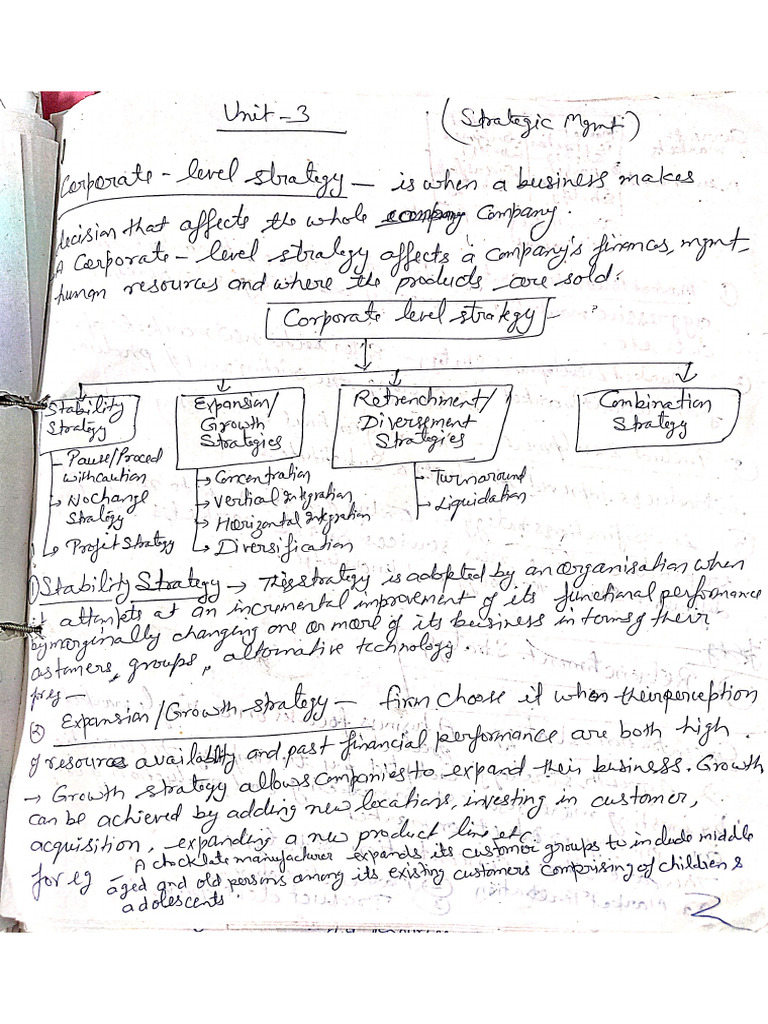 Unit - 3
(Strategic Mgmt)
Corporate - level strategy — is when a business makes
decision that affects the whole company Company.
A Corporate - level strategy affects a company's finances, mgmt,
human resources and where the products are sold.
Corporate level strategy
Stability Strategy
Expansion/ Growth Strategies
Retrenchment/ Diversement Strategies
Combination Strategy
Pause/Proced with caution
No change Strategy
Profit Strategy
Concentration
Vertical Integration
Horizontal Integration
Diversification
Turnaround
Liquidation
1) Stability Strategy → This strategy is adopted by an organisation when
it attempts at an incremental improvement of its functional performance
by marginally changing one or more of its business in terms of their
customers, groups, alternative technology.
② Expansion/Growth strategy — firm choose it when their perception
of resources availability and past financial performance are both high.
→ Growth strategy allows companies to expand their business. Growth
can be achieved by adding new locations, investing in customer,
acquisition, expanding a new product line etc
for eg - A chocklate manufacturer expands its customer groups to include middle
aged and old persons among its existing customers comprising of children &
adolescents.
2